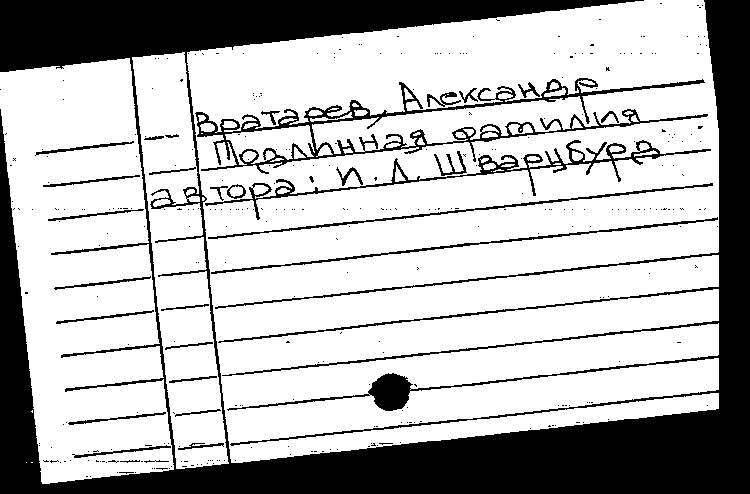 Вратарев, Александр
Подлинная фамилия
автора: И. Л. Шварцбурд